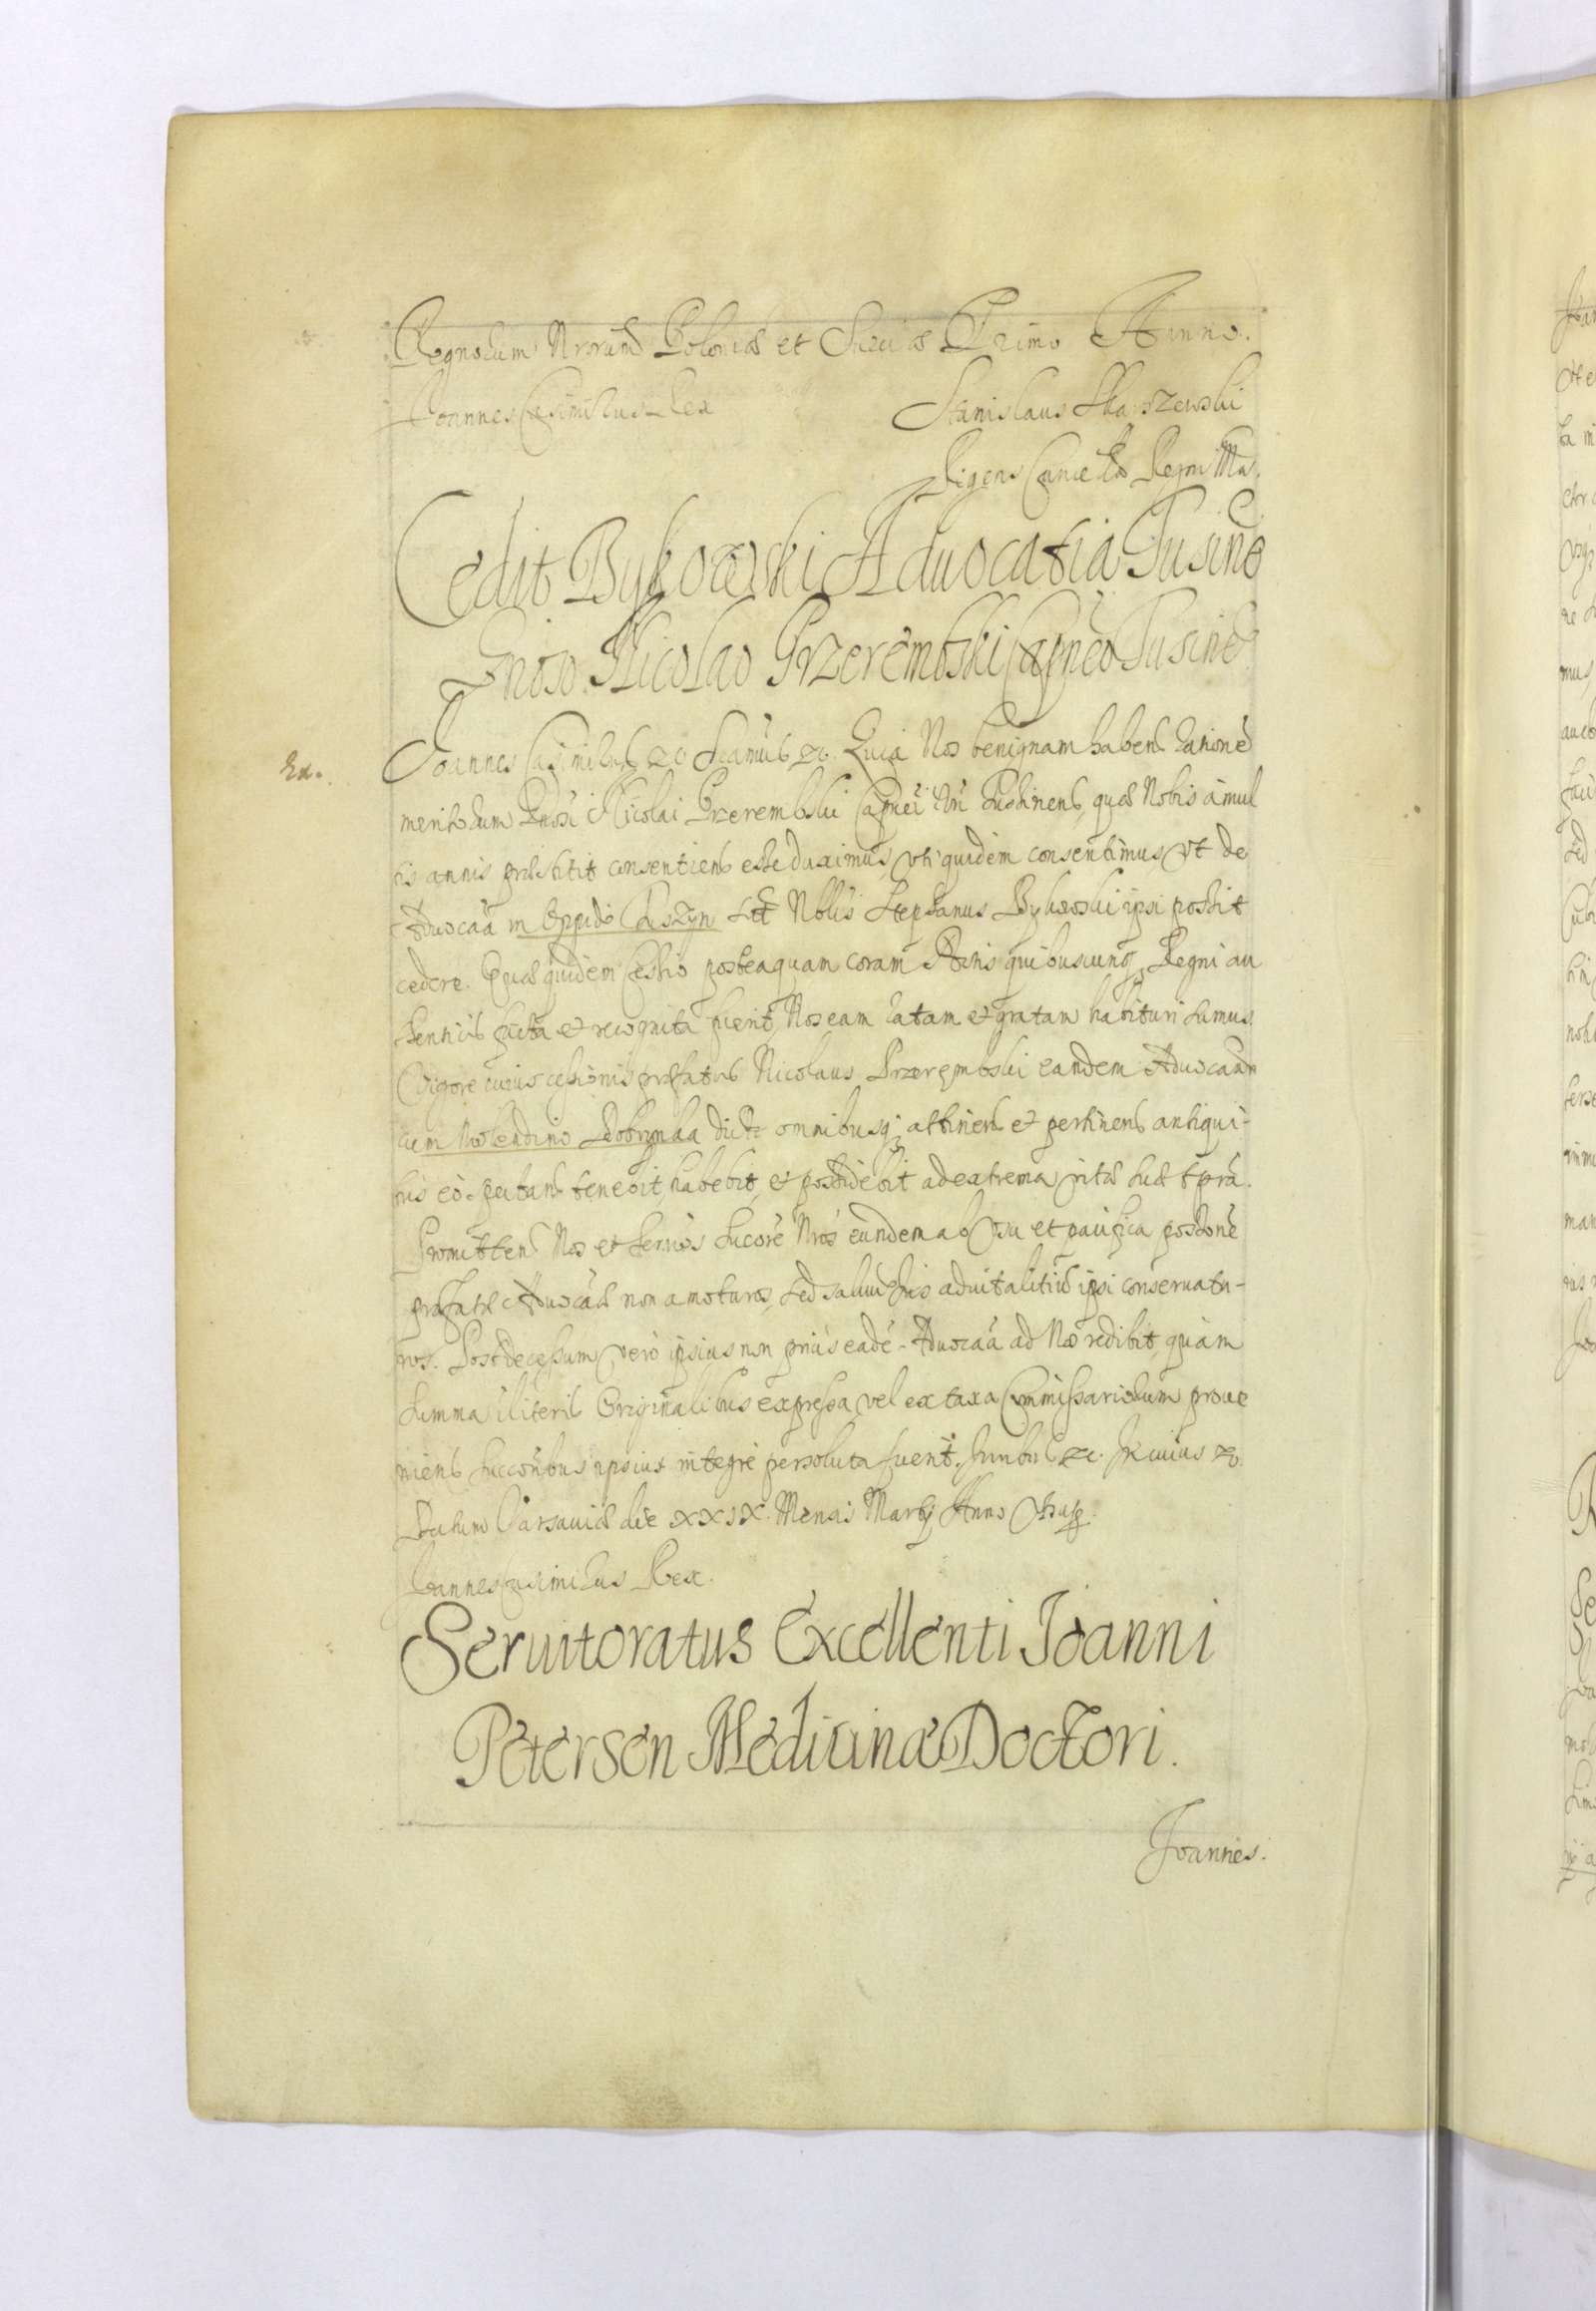 Regnorum Nrorum Poloniæ et Sueciæ Primo Anno.
Joannes Casimirus Rex Stanislaus Skarszewski
Regens Cancellæ Regni Mu.
Cedit Bykowski Advocatia Tusinē
Gnoso Nicolao Przerembski Capneo Tusinē
Ex.
Joannes Casimirus &c Scamus &c. Quia Nos benignam habent rationē
meritorum Gnosi Nicolai Przerembski Capnei Nri Tushinens, quæ Nobis à mul
tis annis præstitit consentiens esse duximus, uti quidem consentimus, ut de
Aduocāa in Oppido Ryszyn sit Nobilis Stephanus Bykowski ipsi possit
cedere. Quæ quidem Cessio posteaquam coram Actis quibuscunq Regni au
tenticis facta et recognita fuerit, Nos eam ratam et gratam habituri sumus
Vigore cuius cessionis præfatus Nicolaus Przerembski eandem Aduocaām
cum Molendino Dobrynka dicto omnibusq; attinens et pertinens antiqui-
tus eò spectans tenebit, habebit, et possidebit ad extrema vitæ suæ tpra.
Promittens Nos et Sernos Succores Nros eundem ab usu et pacifica possone
præfatæ Aduocāæ non amoturos, sed saluū Ius aduitalitiū ipsi conseruatu-
ros. Post decessum verò ipsius non prius eadē Aduocāa ad Nos redibit, quàm
summa i literis Originalibus expressa vel ex taxa Commissariorum proue
niens succoribus ipsius integrè persoluta fuerit. Iuribus &c. In cuius &c.
Datum Varsauiæ die XXIX. Mensis Martij Anno Usup.
Joannes Casimirus Rex.
Seruitoratus Excellenti Ioanni
Petersen Medicinæ Doctori.
Joannes.